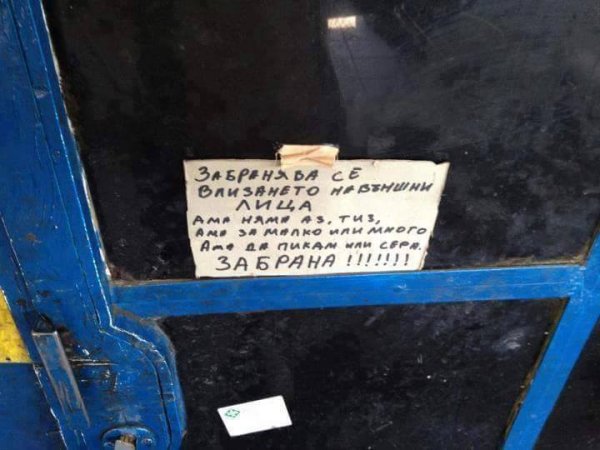 ЗАБРАНЯВА СЕ
ВЛИЗАНЕТО НА ВЪНШНИ
ЛИЦА
АМА НЯМА АЗ, ТИЗ,
АМА ЗА МАЛКО ИЛИ МНОГО
АМА ДА ПИКАМ ИЛИ СЕРА.
ЗАБРАНА !!!!!!!